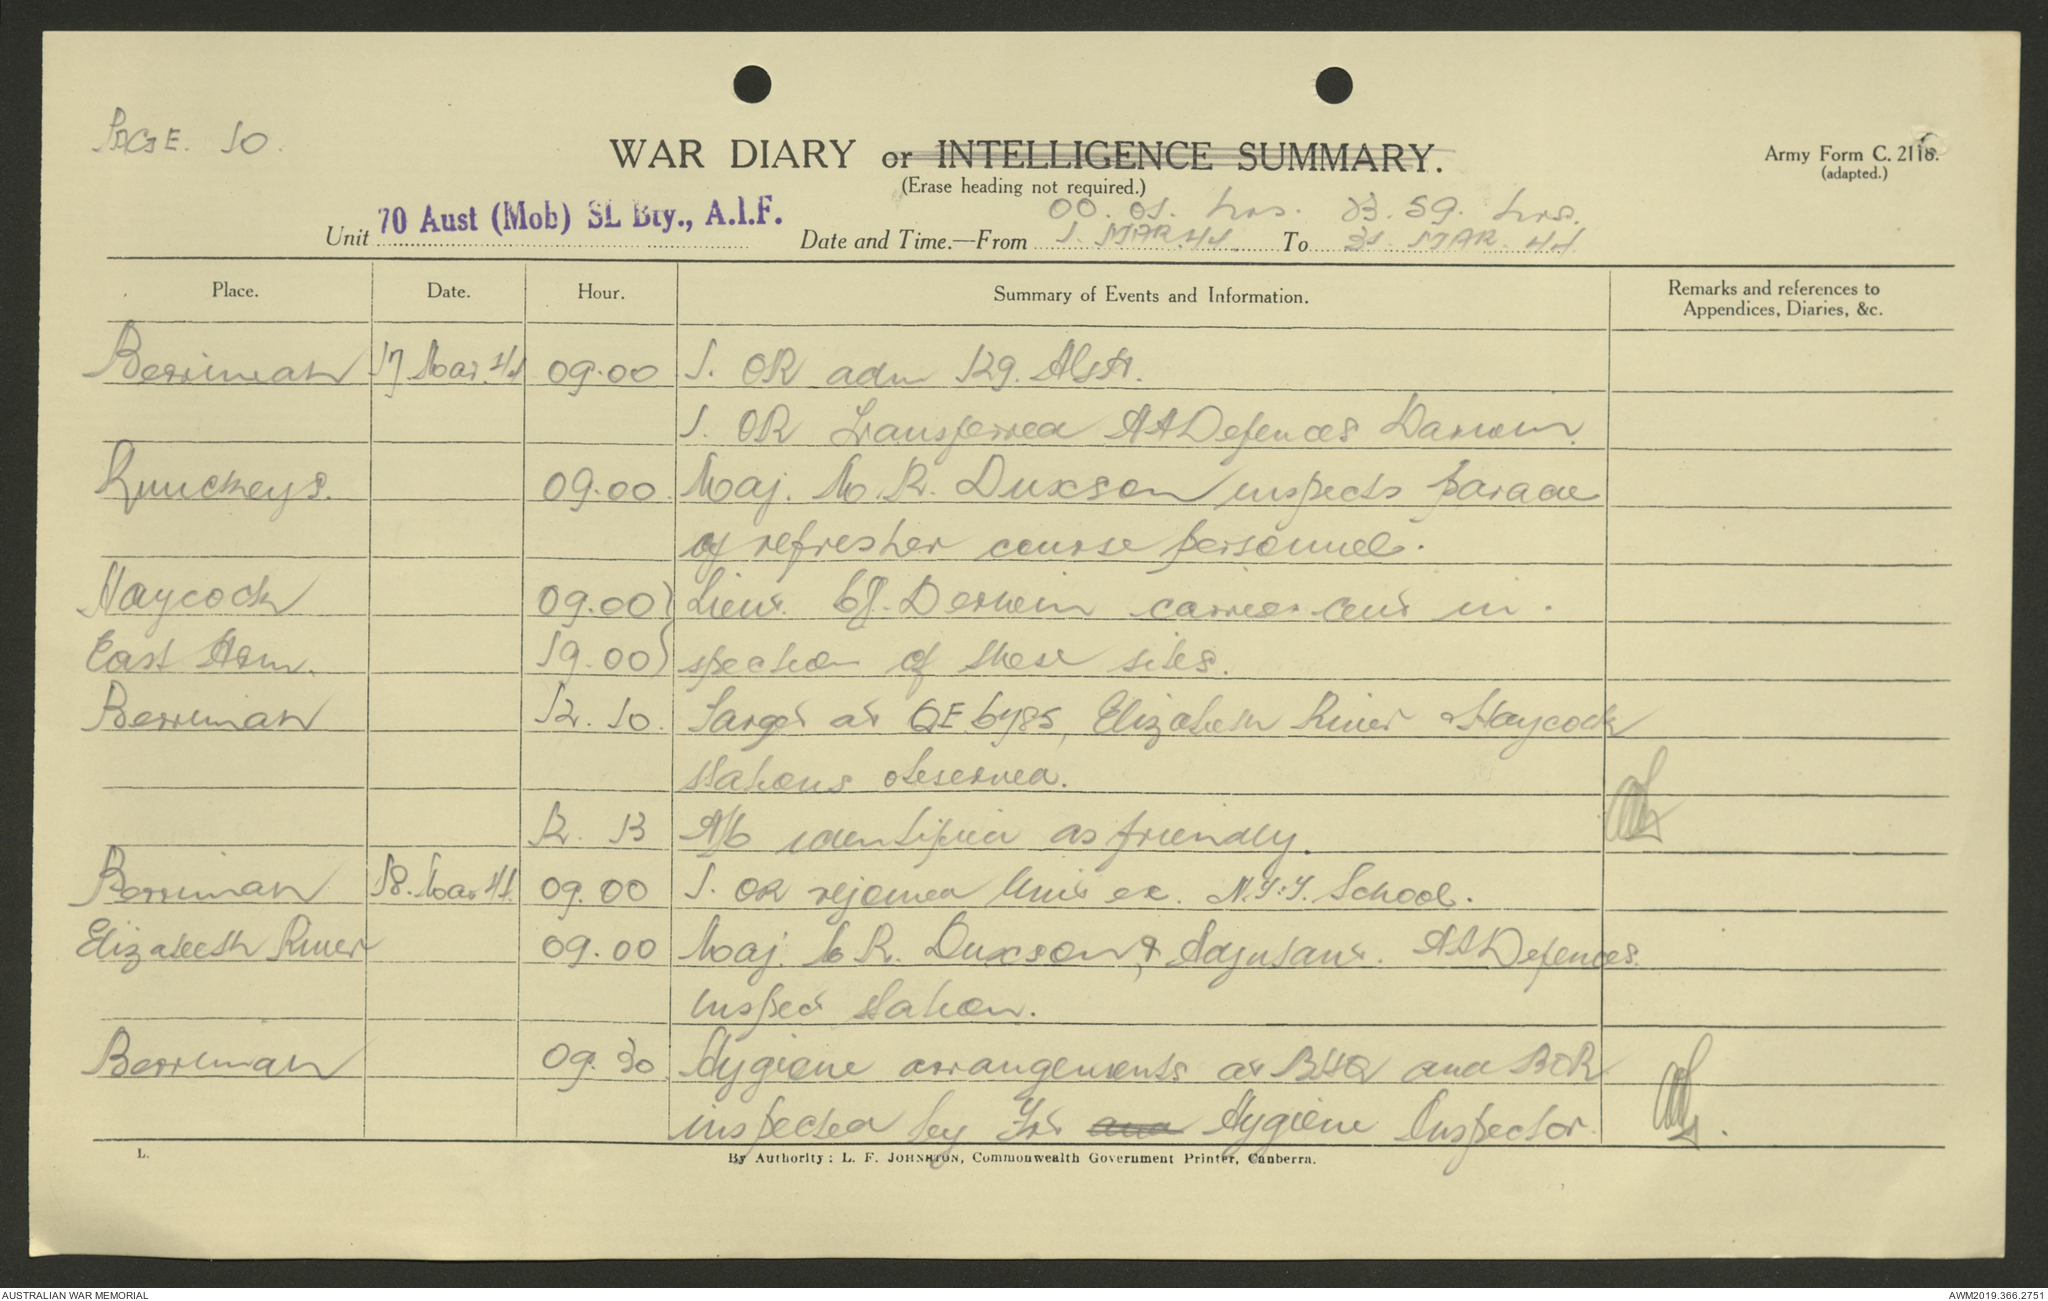 PAGE. 10.
WAR DIARY or INTELLIGENCE SUMMARY.
(Erase heading not required.)
Army Form C. 2118.
(adapted.)
Unit 70 Aust (Mob) SL Bty., A.I.F.
00.01. hrs. 23.59. hrs.
Date and Time.—From 1. MAR. 44 To 31. MAR. 44
Place. Date. Hour. Summary of Events and Information. Remarks and references to
Appendices, Diaries, &c.
Berrimah 17 Mar. 44 09.00 1. OR adm 129. AGH.
1. OR transferred AA Defences Darwin.
Quickeys. 09.00 Maj. M. R. Duxson inspects parade
of refresher course personnel.
Haycock 09.00) Lieut. Derwin carries out in-
East Arm. 19.00) spection of these sites.
Berrimah 12.10. Target at QE 6785, Elizabeth River & Haycock
stations observed.
12.13 A/c identified as friendly.
Berrimah 18. Mar 44. 09.00 1. OR rejoined Unit ex. N.T.T. School.
Elizabeth River 09.00 Maj. M R. Duxson, & Adjutant. AA Defences.
inspect station.
Berrimah 09.30 Hygiene arrangements at BHQ and BOR
inspected by and Hygiene Inspector.
L. By Authority: L. F. JOHNSTON, Commonwealth Government Printer, Canberra.
AUSTRALIAN WAR MEMORIAL AWM2019.366.2751